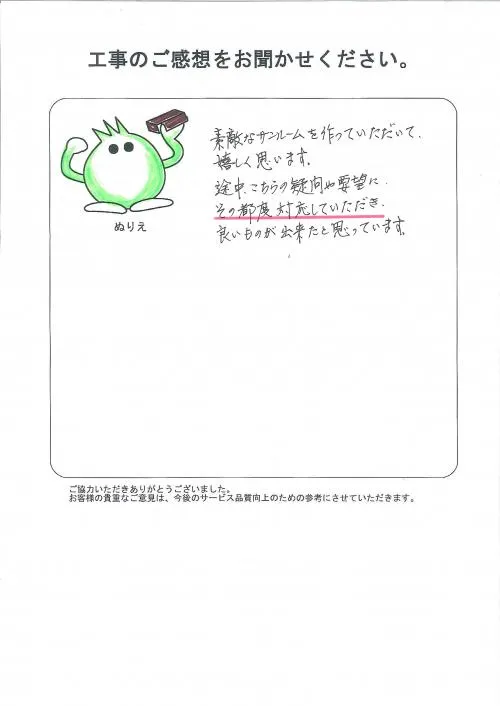 工事のご感想をお聞かせください。
素敵なサンルームを作っていただいて、
嬉しく思います。
途中、こちらの疑問や要望に、
その都度対応していただき、
良いものが出来たと思っています。
ぬりえ
ご協力いただきありがとうございました。
お客様の貴重なご意見は、今後のサービス品質向上のための参考にさせていただきます。